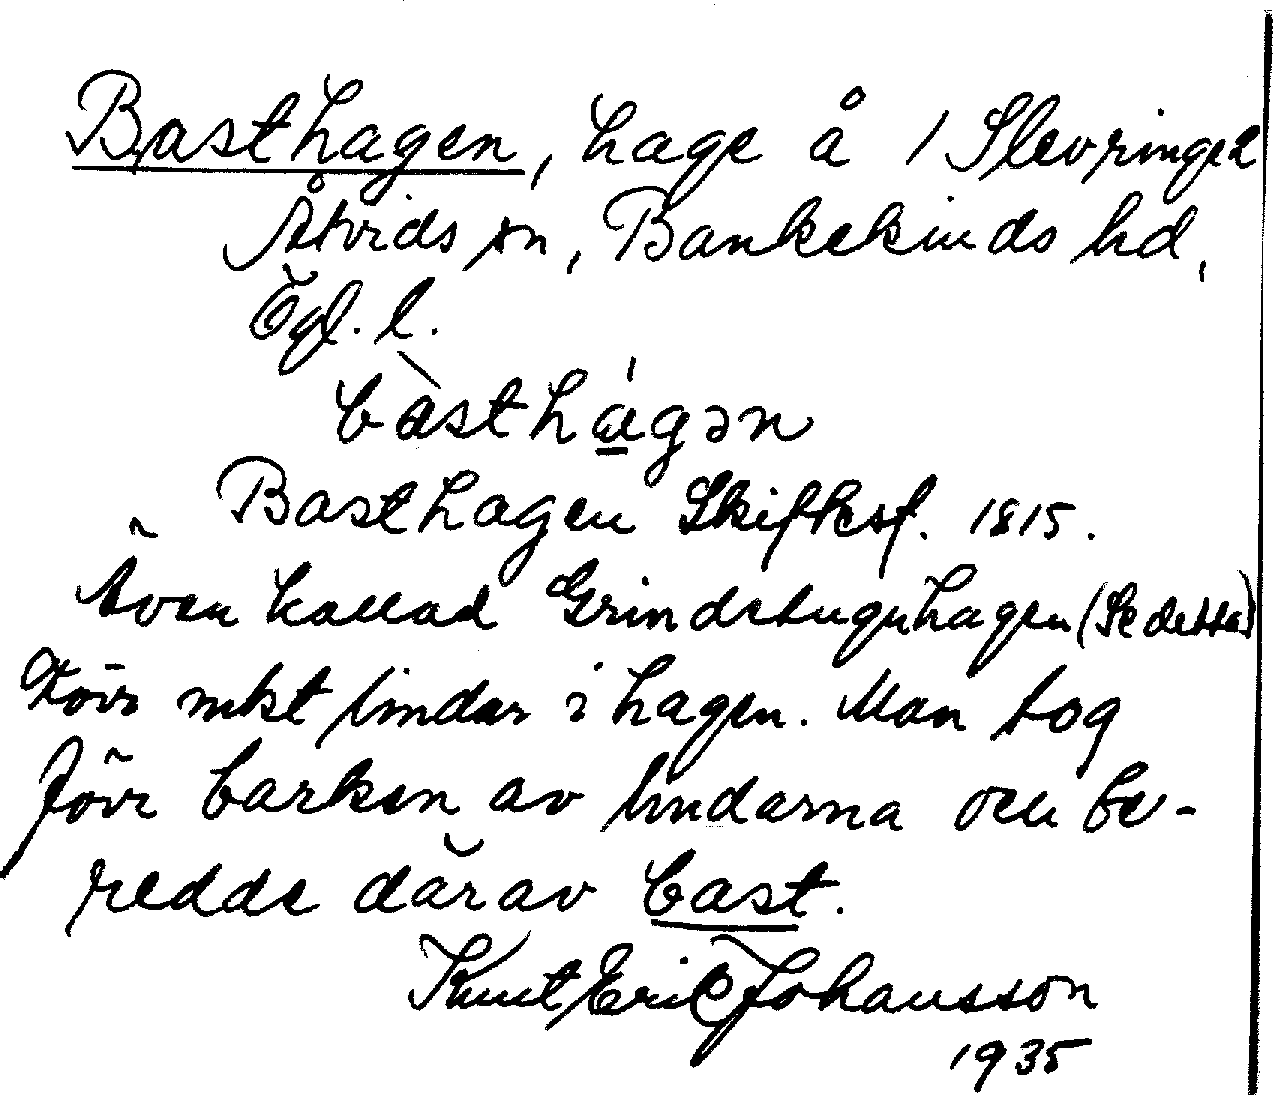 Basthagen, hage å 1 Slevringe
Åtvids sn, Bankekinds hd,
Ögl. l.
bàsthágən
Basthagen Skifteshl. 1815.
Även kallad Grindstuguhagen (Se detta)
Förr mkt lindar i hagen. Man tog
förr barken av lindarna och be-
redde därav bast.
Knut Eric Johansson
1935